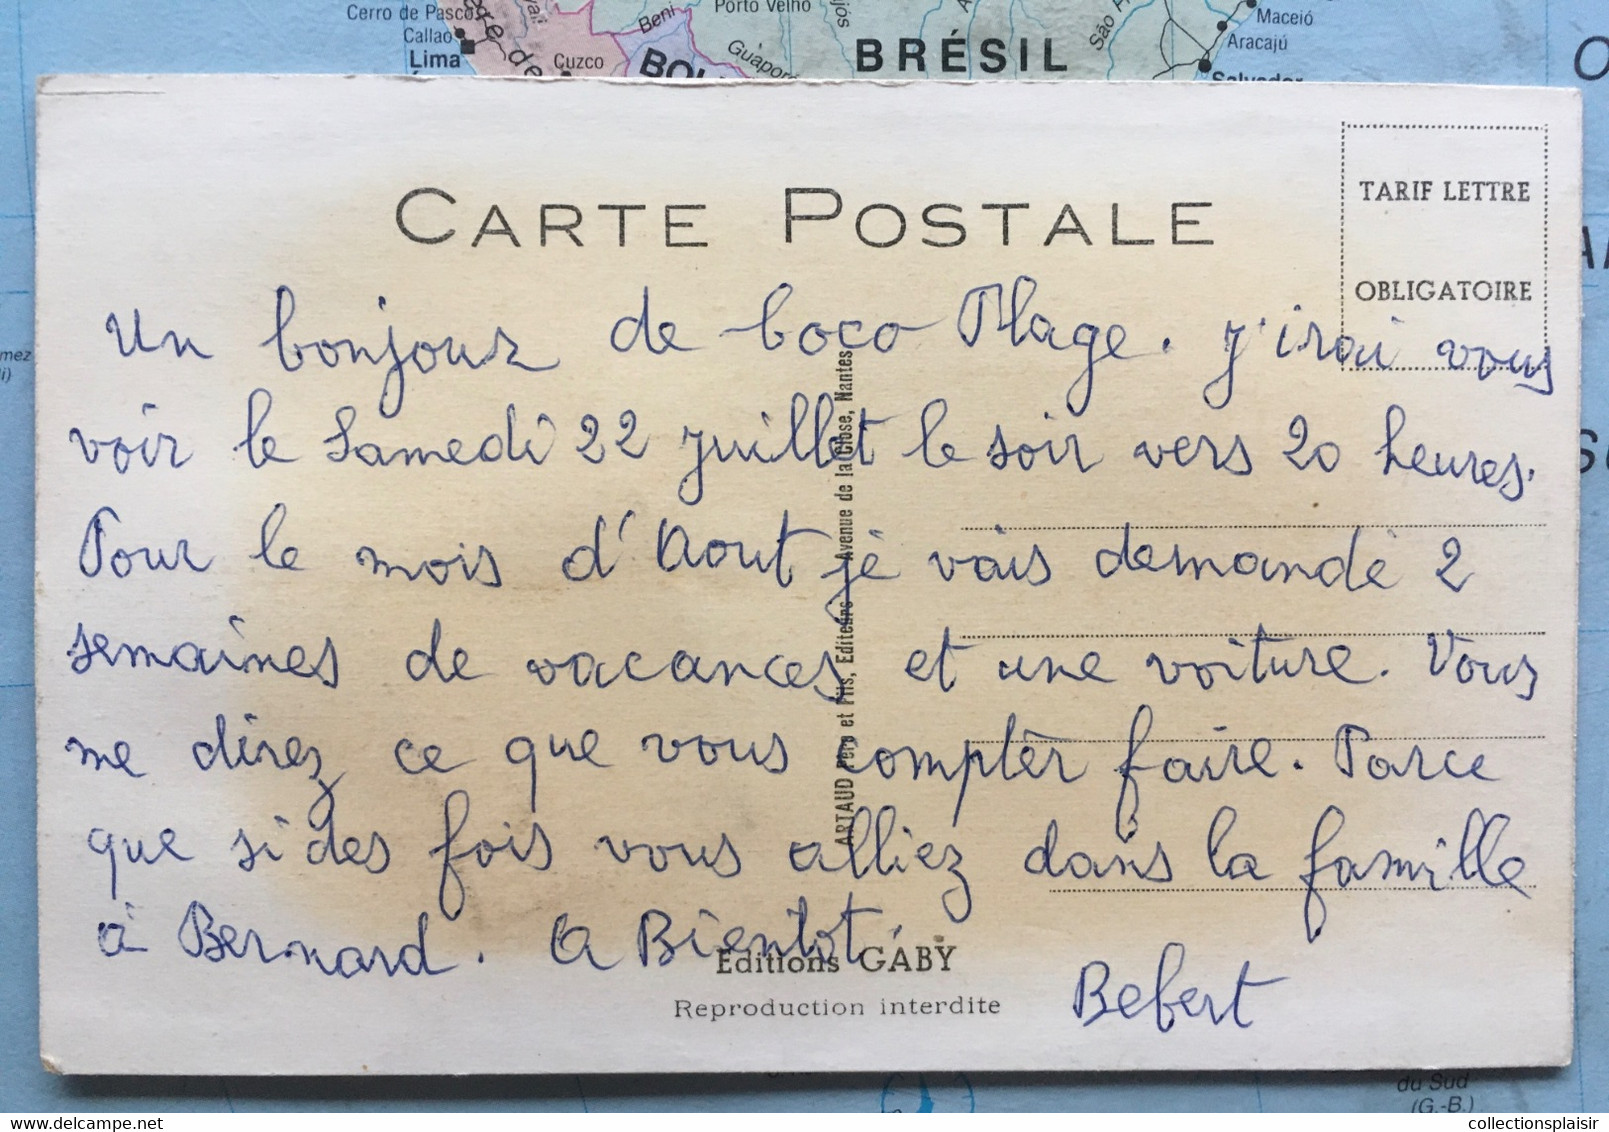 Cerro de Pasco
Callao
Lima
Cuzco
Beni
Porto Velho
Guaporé
BRÉSIL
Maceió
Aracajú
Salvador
CARTE POSTALE
TARIF LETTRE
OBLIGATOIRE
Un bonjour de Coco Plage. J'irai vous
voir le Samedi 22 juillet le soir vers 20 heures.
Pour le mois d'Aout je vais demandé 2
semaines de vacances et une voiture. Vous
me direz ce que vous compter faire. Parce
que si des fois vous alliez dans la famille
à Bernard. A Bientot.
Bebert
ARTAUD Père et Fils, Editeurs - Avenue de la Close, Nantes
Editions GABY
Reproduction interdite
du Sud
(G.-B.)
collectionsplaisir